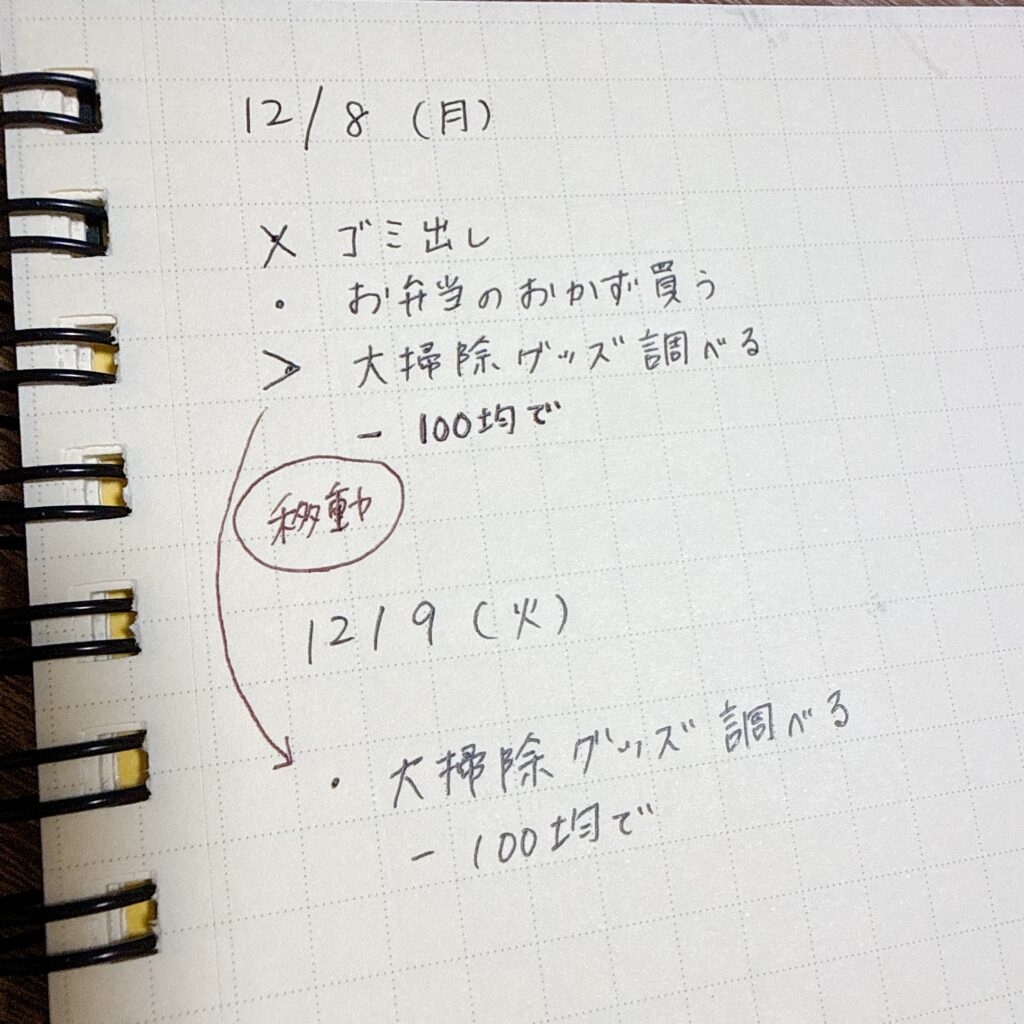 12/8 (月)
× ゴミ出し
・ お弁当のおかず買う
> 大掃除グッズ調べる
- 100均で
移動
12/9 (火)
・ 大掃除グッズ調べる
- 100均で